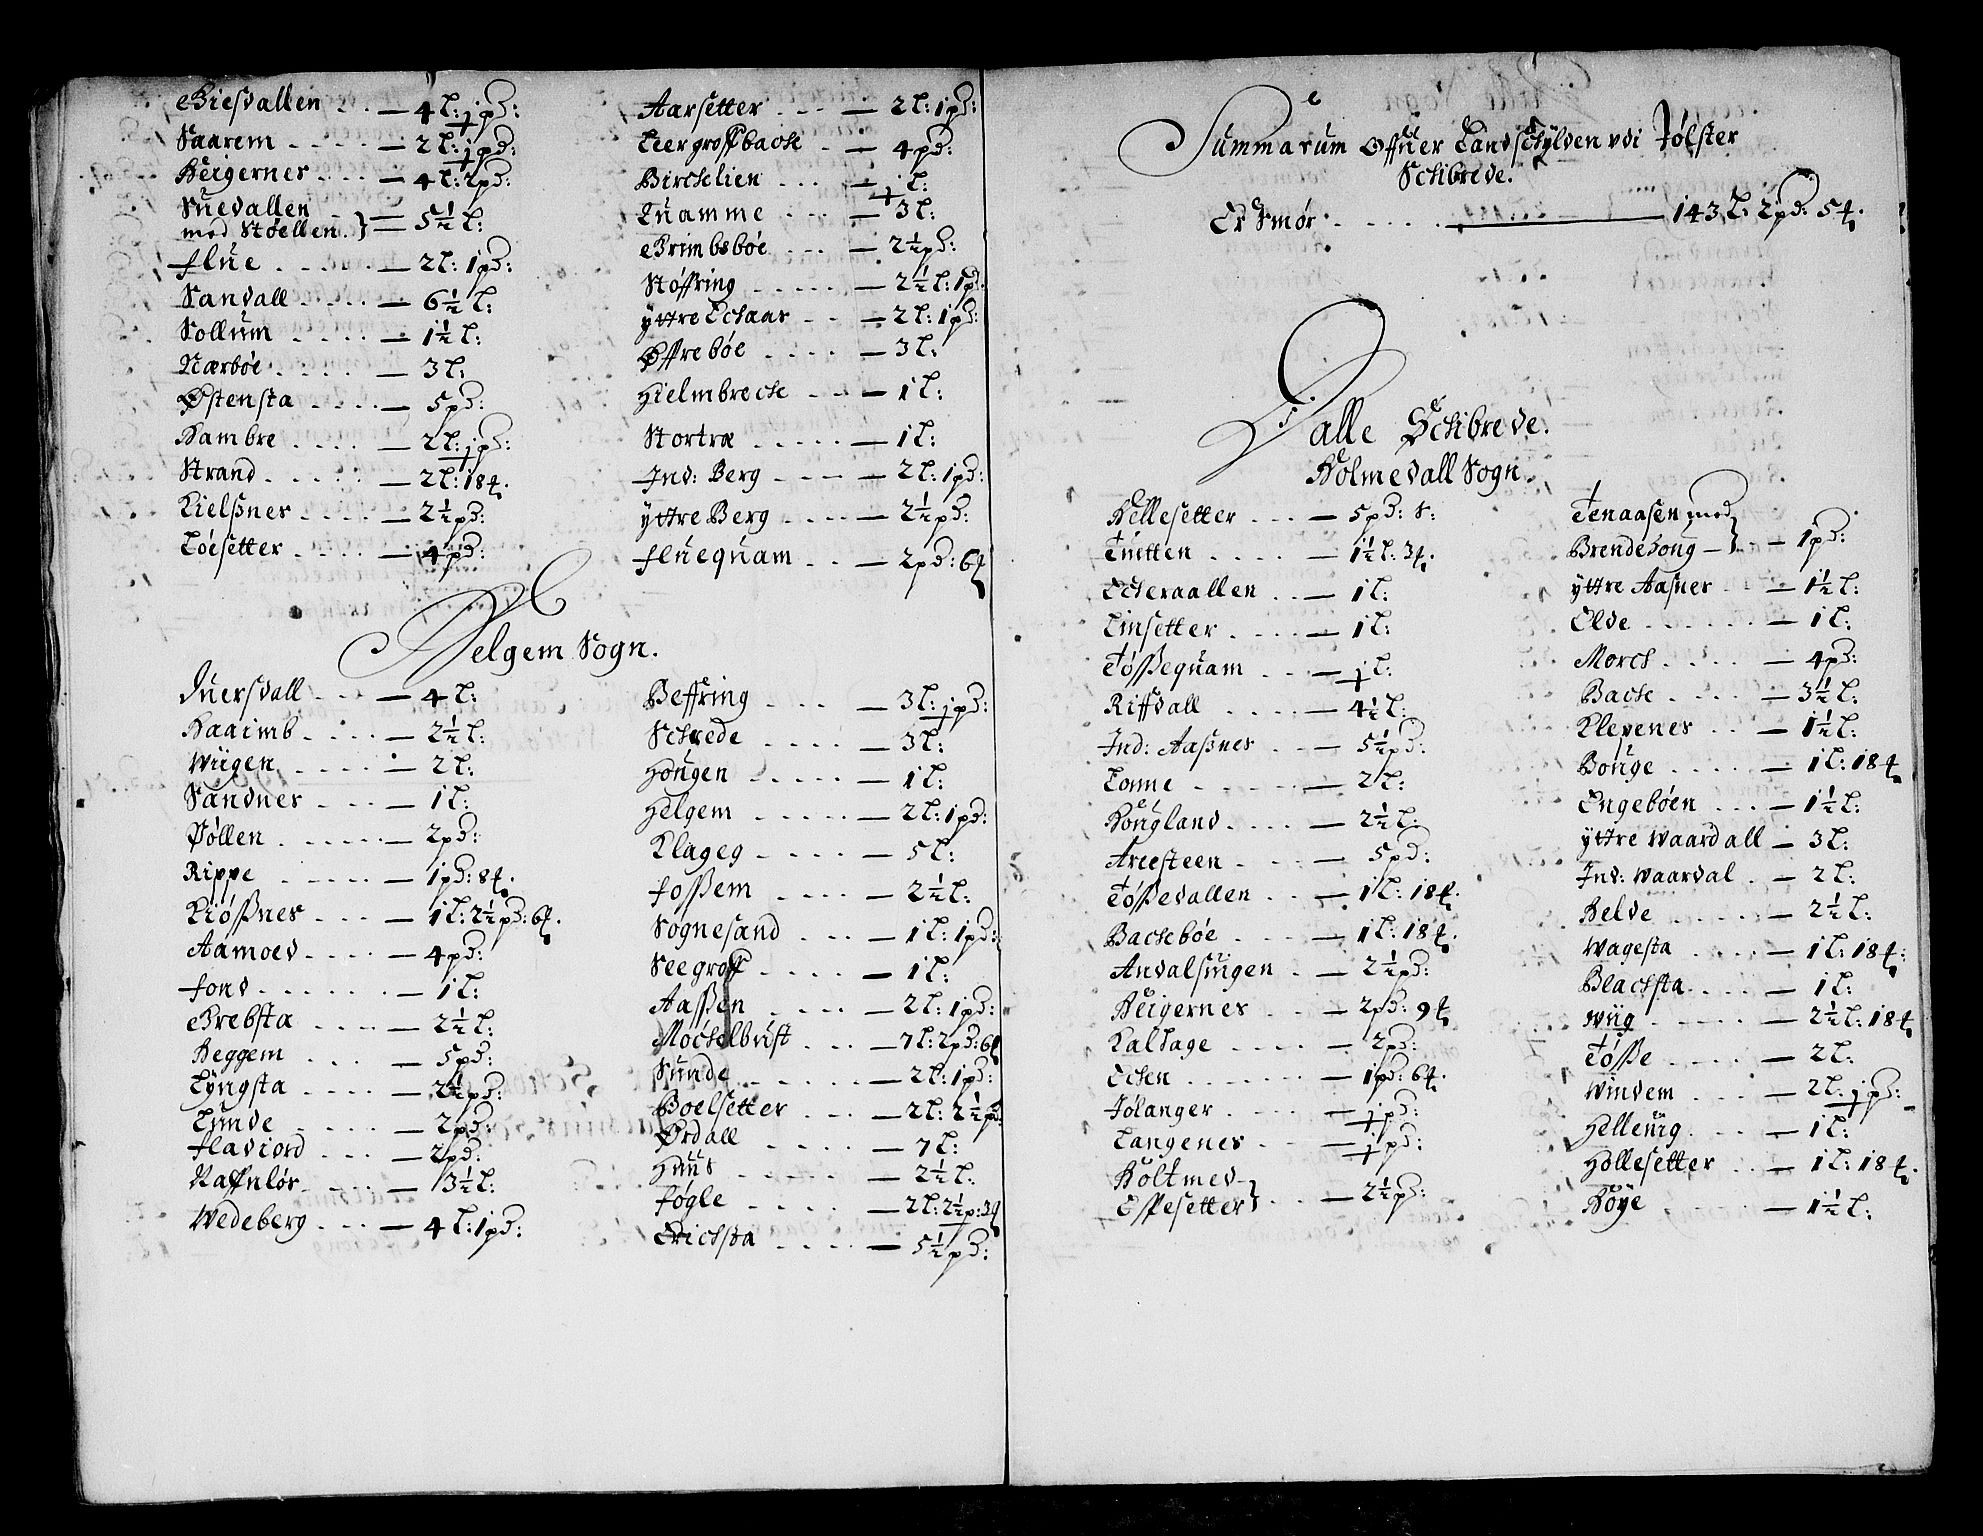 Giesdallen - - - 4 L: j pd:
Saarem - - - - 2 L: j pd:
Heigernes - - - 4 L: 2 pd:
Suedallen
med Støellen. } - 5½ L:
Flue - - - - 2 L: 1 pd:
Sandall - - - - 6½ L:
Sollum - - - - 1½ L:
Nærbøe - - - - 3 L:
Østensta - - - - 5 pd:
Hambre - - - - 2 L: j pd:
Strand - - - - 2 L: 18 ₰.
Kielsnes - - - - 2½ pd:
Løesetter - - - - 4 pd:
Aarsetter - - - 2 L: 1 pd:
Liergroffbache - 4 pd:
Birchelien - - - j L:
Quamme - - - 3 L:
Grimbsbøe - - - 2½ pd:
Støffring - - - - 2½ L: 1 pd:
Yttre Echaar - - 2 L: 1 pd:
Øffrebøe - - - - 3 L:
Hielmbreche - - 1 L:
Stortræ - - - - 1 L:
Ind: Berg - - - 2 L: 1 pd:
Yttre Berg - - - 2½ pd:
Fluequam - - - 2 pd: 6 ₰
Helgem Sogn.
Duersdall - - - 4 L:
Kaaimb - - - 2½ L:
Wiigen - - - - 2 L:
Sandnes - - - 1 L:
Søllen - - - - 2 pd:
Rippe - - - - 1 pd: 8 ₰.
Kiøssnes - - - 1 L: 2½ pd: 6 ₰.
Aamoed - - - - 4 pd:
Fond - - - - - 1 L:
Grebsta - - - 2½ L:
Heggem - - - 5 pd:
Lyngsta - - - 2½ pd:
Lunde - - - - 2 pd:
Flaviord - - - 2 pd:
Raffnløs - - - 3½ L:
Wedeberg - - - 4 L: 1 pd:
Beffring - - - 3 L: j pd:
Schrede - - - - 3 L:
Hougen - - - - 1 L:
Helgem - - - - 2 L: 1 pd:
Klageg - - - - 5 L:
Fossem - - - - 2½ L:
Sognesand - - - 1 L: 1 pd:
Seegroff - - - - 1 L:
Aassen - - - - 2 L: 1 pd:
Møchelbust - - - 7 L: 2 pd: 6 ₰
Sunde - - - - 2 L: 1 pd:
Boelsetter - - - 2 L: 2½ pd
Ørdall - - - - 7 L:
Huus - - - - 2½ L:
Føgle - - - - 2 L: 2½ p: 3 ₰
Erichsta - - - - 5½ pd:
Summarum Offuer Landschylden udi Jølster
Schibrede.
Er Smør - - - - - 143 L: 2 pd: 5 ₰.
Dalle Schibrede.
Holmedall Sogn.
Hellesetter - - - 5 pd: S:
Tuitten - - - - 1½ L: 3 ₰.
Echeraallen - - 1 L:
Linsetter - - - 1 L:
Tøssequam - - - j L:
Riffsdall - - - 4½ L:
Ind: Aassnes - - 5½ pd:
Lonne - - - - 2 L:
Hougland - - - 2½ L:
Areesteen - - - 5 pd:
Tøssedallen - - 1 L: 18 ₰.
Bachebøe - - - 1 L: 18 ₰.
Andalsuigen - - 2½ pd:
Heigernes - - - 2 pd: 9 ₰
Kaldage - - - - 2 pd:
Echen - - - - - 1 pd: 6 ₰.
Jølanger - - - - j pd:
Langenes - - - j pd:
Holt med
Espesetter } - - 2½ pd:
Tenaasen med
Brendehoug } - - 1 pd:
Yttre Aasnes - - 1½ L:
Elde - - - - - 1 L:
Morch - - - - 4 pd:
Bache - - - - 3½ L:
Klepenes - - - 1½ L:
Bouge - - - - 1 L: 18 ₰
Engebøen - - - 1½ L:
Yttre Waardall - 3 L:
Ind: Waardal - - 2 L:
Helde - - - - 2½ L:
Wagesta - - - 1 L: 18 ₰:
Blachsta - - - 1 L:
Wiig - - - - 2½ L: 18 ₰
Tøsse - - - - 2 L:
Windem - - - 2 L: j pd:
Helleuig - - - 1 L:
Hollesetter - - 1 L: 18 ₰.
Høye - - - - 1½ L: